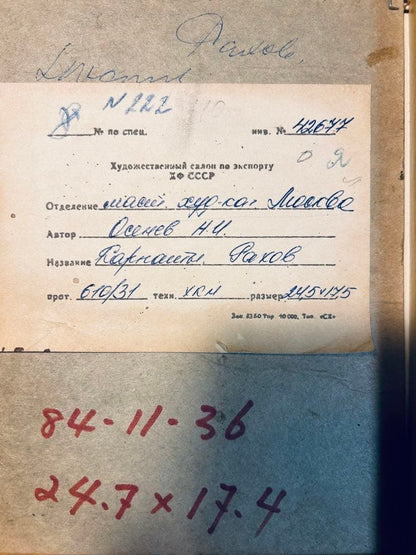 Рахов.
N 222
№ по спец. инв. № 42677
Художественный салон по экспорту
ХФ СССР
Отделение маст. худ-ка Москва
Автор Осенев Н.И.
Название Карпаты. Рахов
прот. 610/31 техн. хкм размер 24,5х17,5
Зак. 8350 Тир. 10 000, Тип. «СХ»
84-11-36
24.7 x 17.4